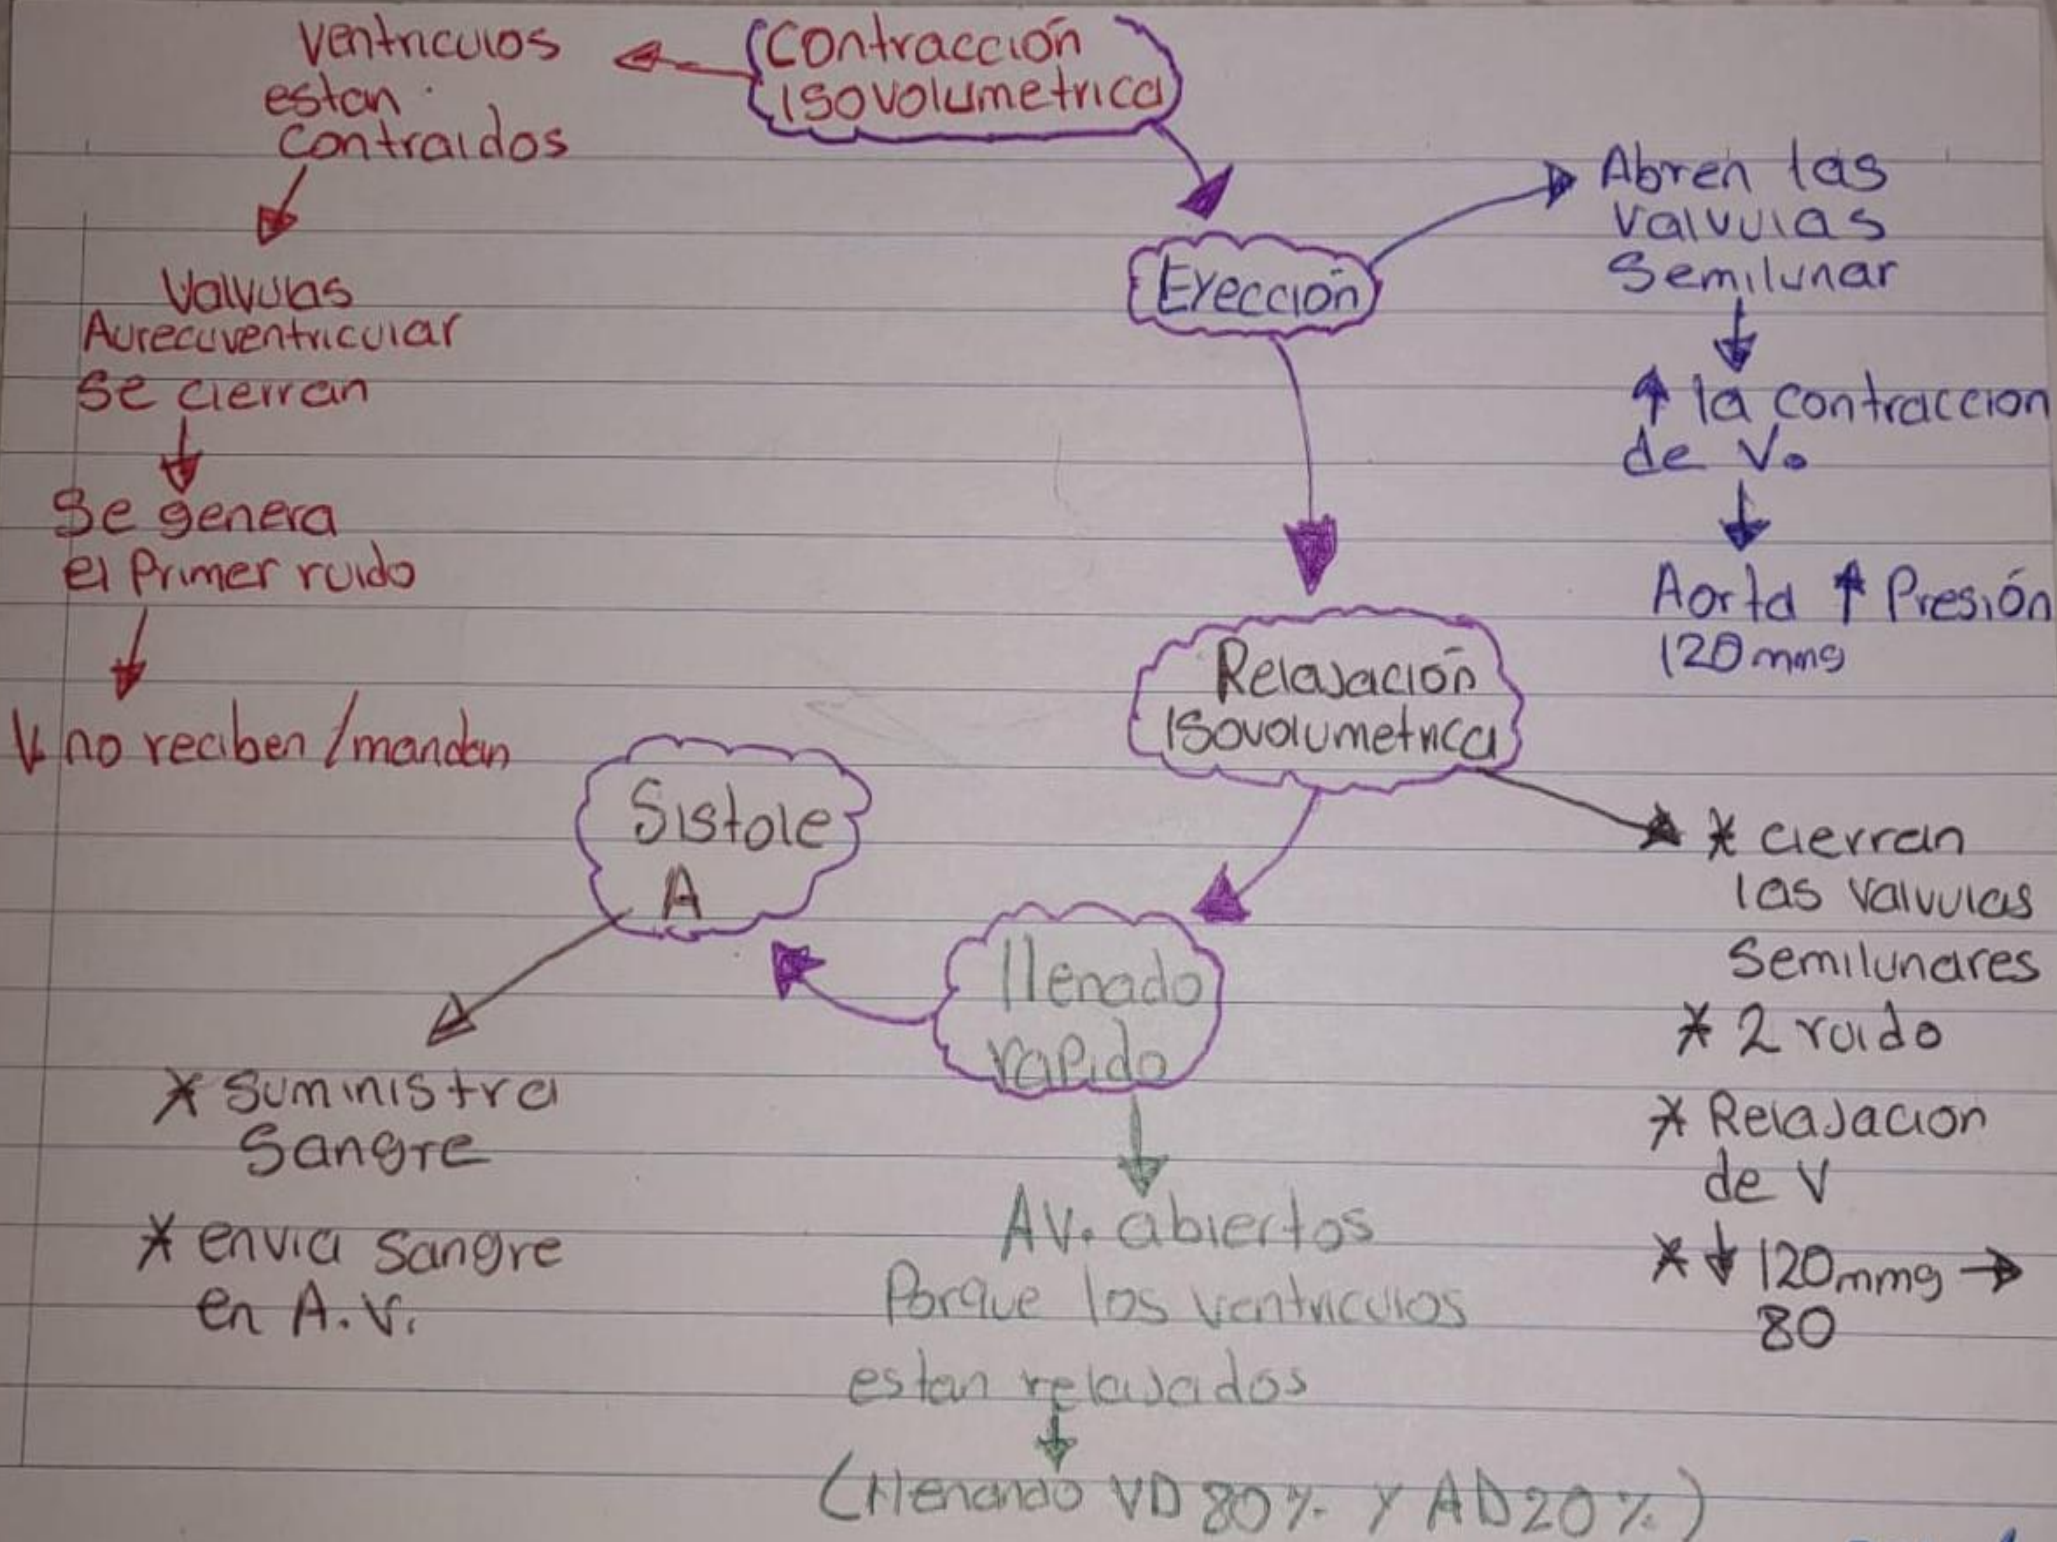 Contracción
isovolumetrica
Ventriculos
estan
contraidos
Valvulas
Aurecuventricular
se cierran
Se genera
el Primer ruido
V no reciben / mandan
Eyección
Abren las
valvulas
Semilunar
↑ la contraccion
de V.
Aorta ↑ Presión
120 mmg
Relajación
Isovolumetrica
* cierran
las valvulas
Semilunares
* 2 ruido
* Relajacion
de V
* ↓ 120mmg →
80
llenado
rapido
AV. abiertos
Porque los ventriculos
estan relajados
(llenando VD 80% y AD 20%)
Sistole
A
* Suministra
Sangre
* envia sangre
en A.V.